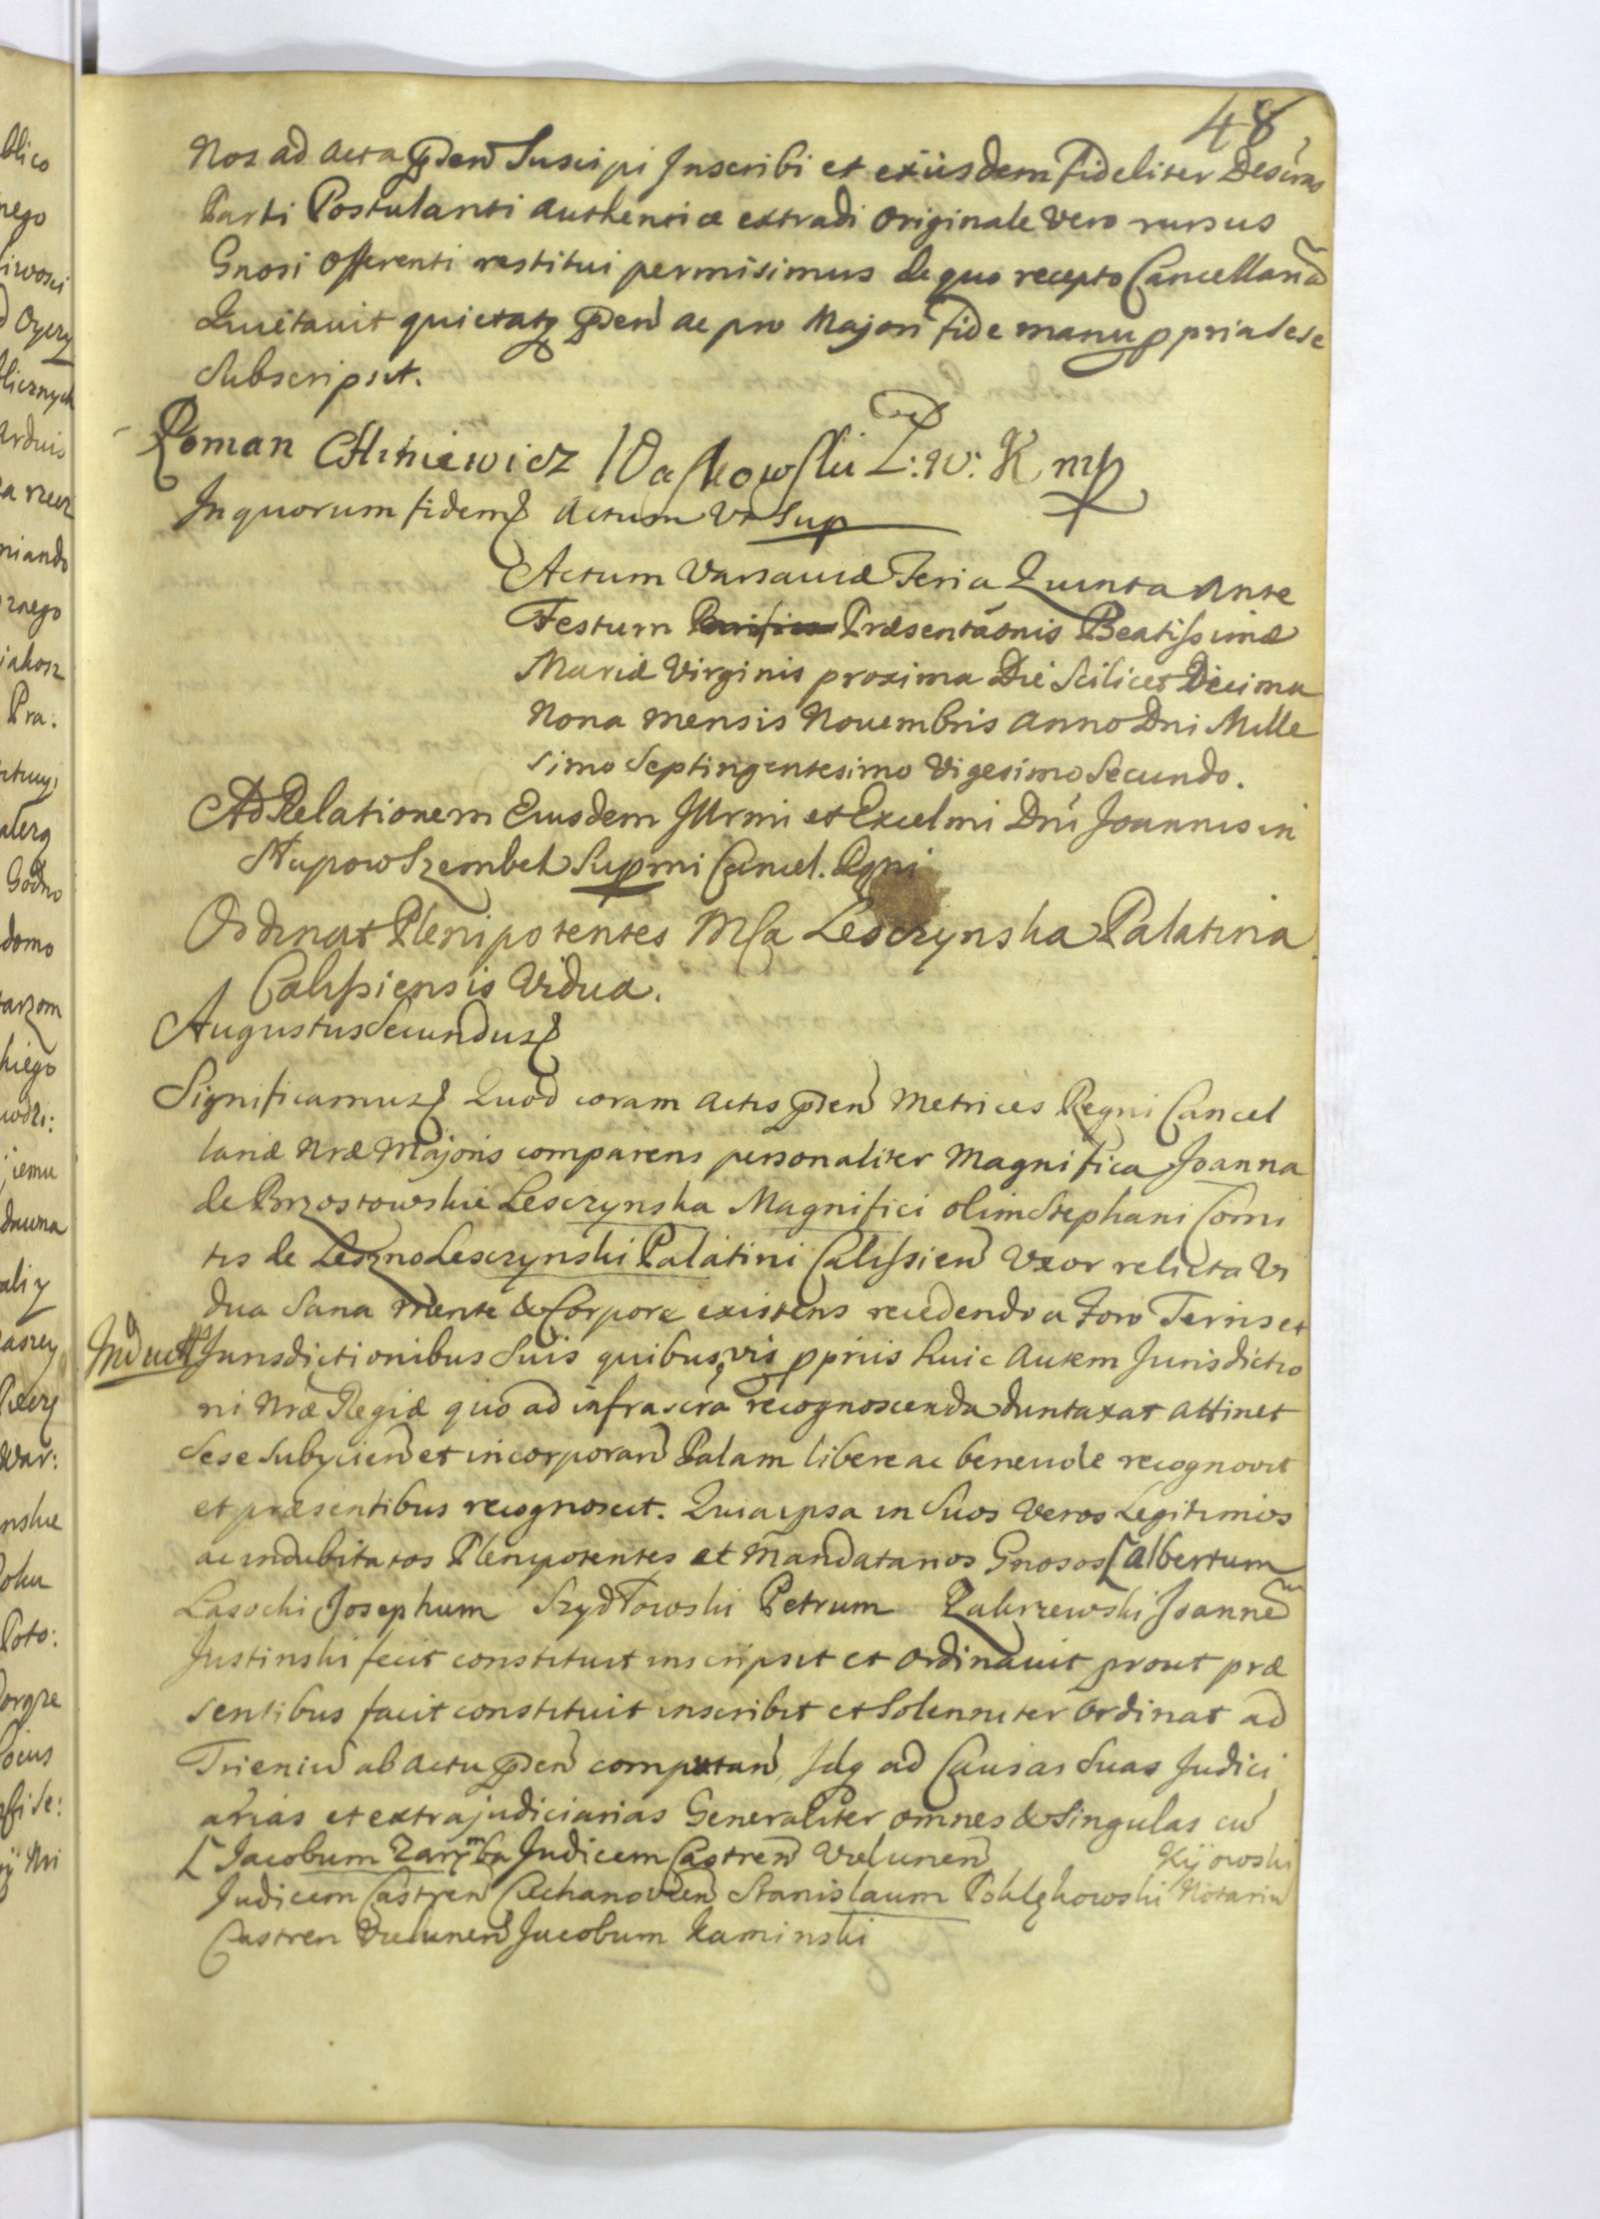 48
Nos ad Acta pden Suscipi Inscribi et eiusdem fideliter Descras
Parti Postulanti authentice extradi originale vero rursus
Gnosi offerenti restitui permisimus de quo recepto Cancellariã
Quietavit quietatq pden ac pro Majori fide manu ppria sese
Subscripsit.
Roman Z: W: K mp
In quorum fidem Actum Vt Sup
Actum Varsaviæ Feria Quinta Ante
Festum Præsentaonis Beatissimæ
Mariæ Virginis proxima Die Scilicet Decima
Nona mensis Novembris Anno Dni Mille
simo Septingentesimo Vigesimo Secundo.
Ad Relationem Eiusdem Illrmi et Excelmi Dni Joannis in
Słupow Szembek Supmi Cancel. Rgni
Ordinat Plenipotentes Mca Lesczynska Palatina
Calissiensis Vidua.
Augustus Secundus
Significamus Quod coram Actis pden Metrices Regni Cancel
lariæ Nræ Majoris comparens personaliter Magnifica Joanna
de Brzostowskie Lesczynska Magnifici olim Stephani Comi
tis de Leszno Lesczynski Palatini Calissien Uxor relicta Vi
dua Sana mente & Corpore existens recedendo a Foro Terris et
Jurisdictionibus Suis quibusvis ppriis huic Autem Jurisdictio
ni Nræ Regiæ quo ad infrascra recognoscenda duntaxat attinet
Sese Subyicien et incorporan Palam libere ac benevole recognovit
et præsentibus recognoscit. Quia ipsa in Suos Veros Legitimos
ac indubitatos Plenipotentes et Mandatarios Gnosos [Albertum
Lasocki Josephum Szydłowski Petrum Zakrzewski Joannẽ
Justinski fecit constituit inscripsit et Ordinavit prout præ
sentibus facit constituit inscribit et Solenniter Ordinat ad
Trieniũ ab Actu pden computan, Idq ad Causas Suas Judici
arias et extrajudiciarias Generaliter omnes & Singulas cũ
[Jacobum Zarymba Judicem Castren Vielunen Kijowski
Judicem Castren Ciechanovien Stanislaum Notariũ
Castren Vielunen Jacobum Kaminski